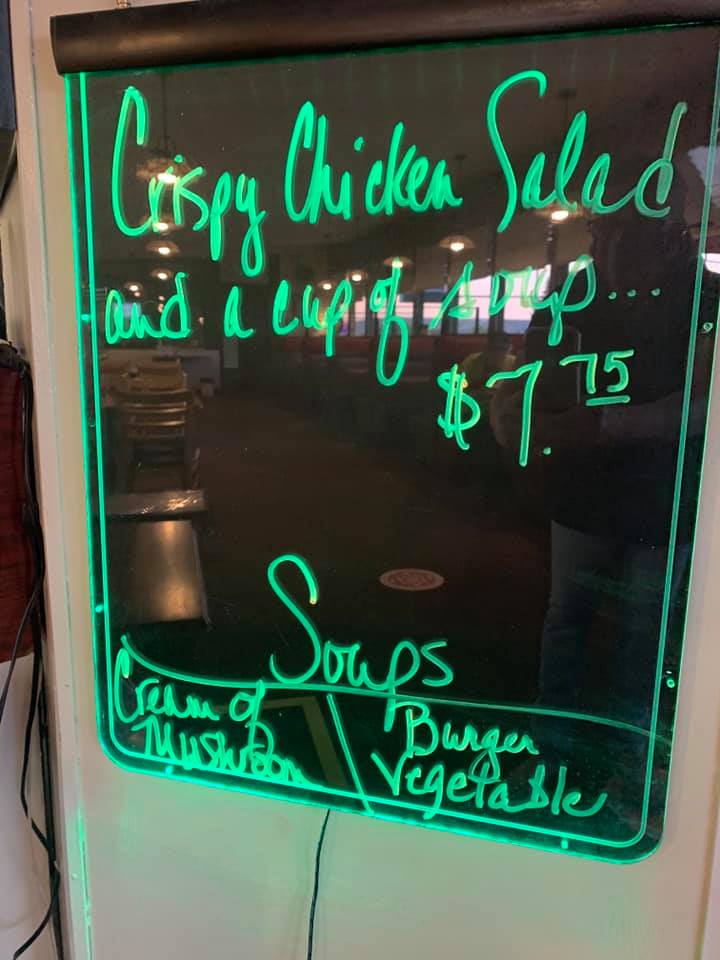 Crispy Chicken Salad
and a cup of soup...
$7.75
Soups
Cream of
Mushroom
Burger
Vegetable